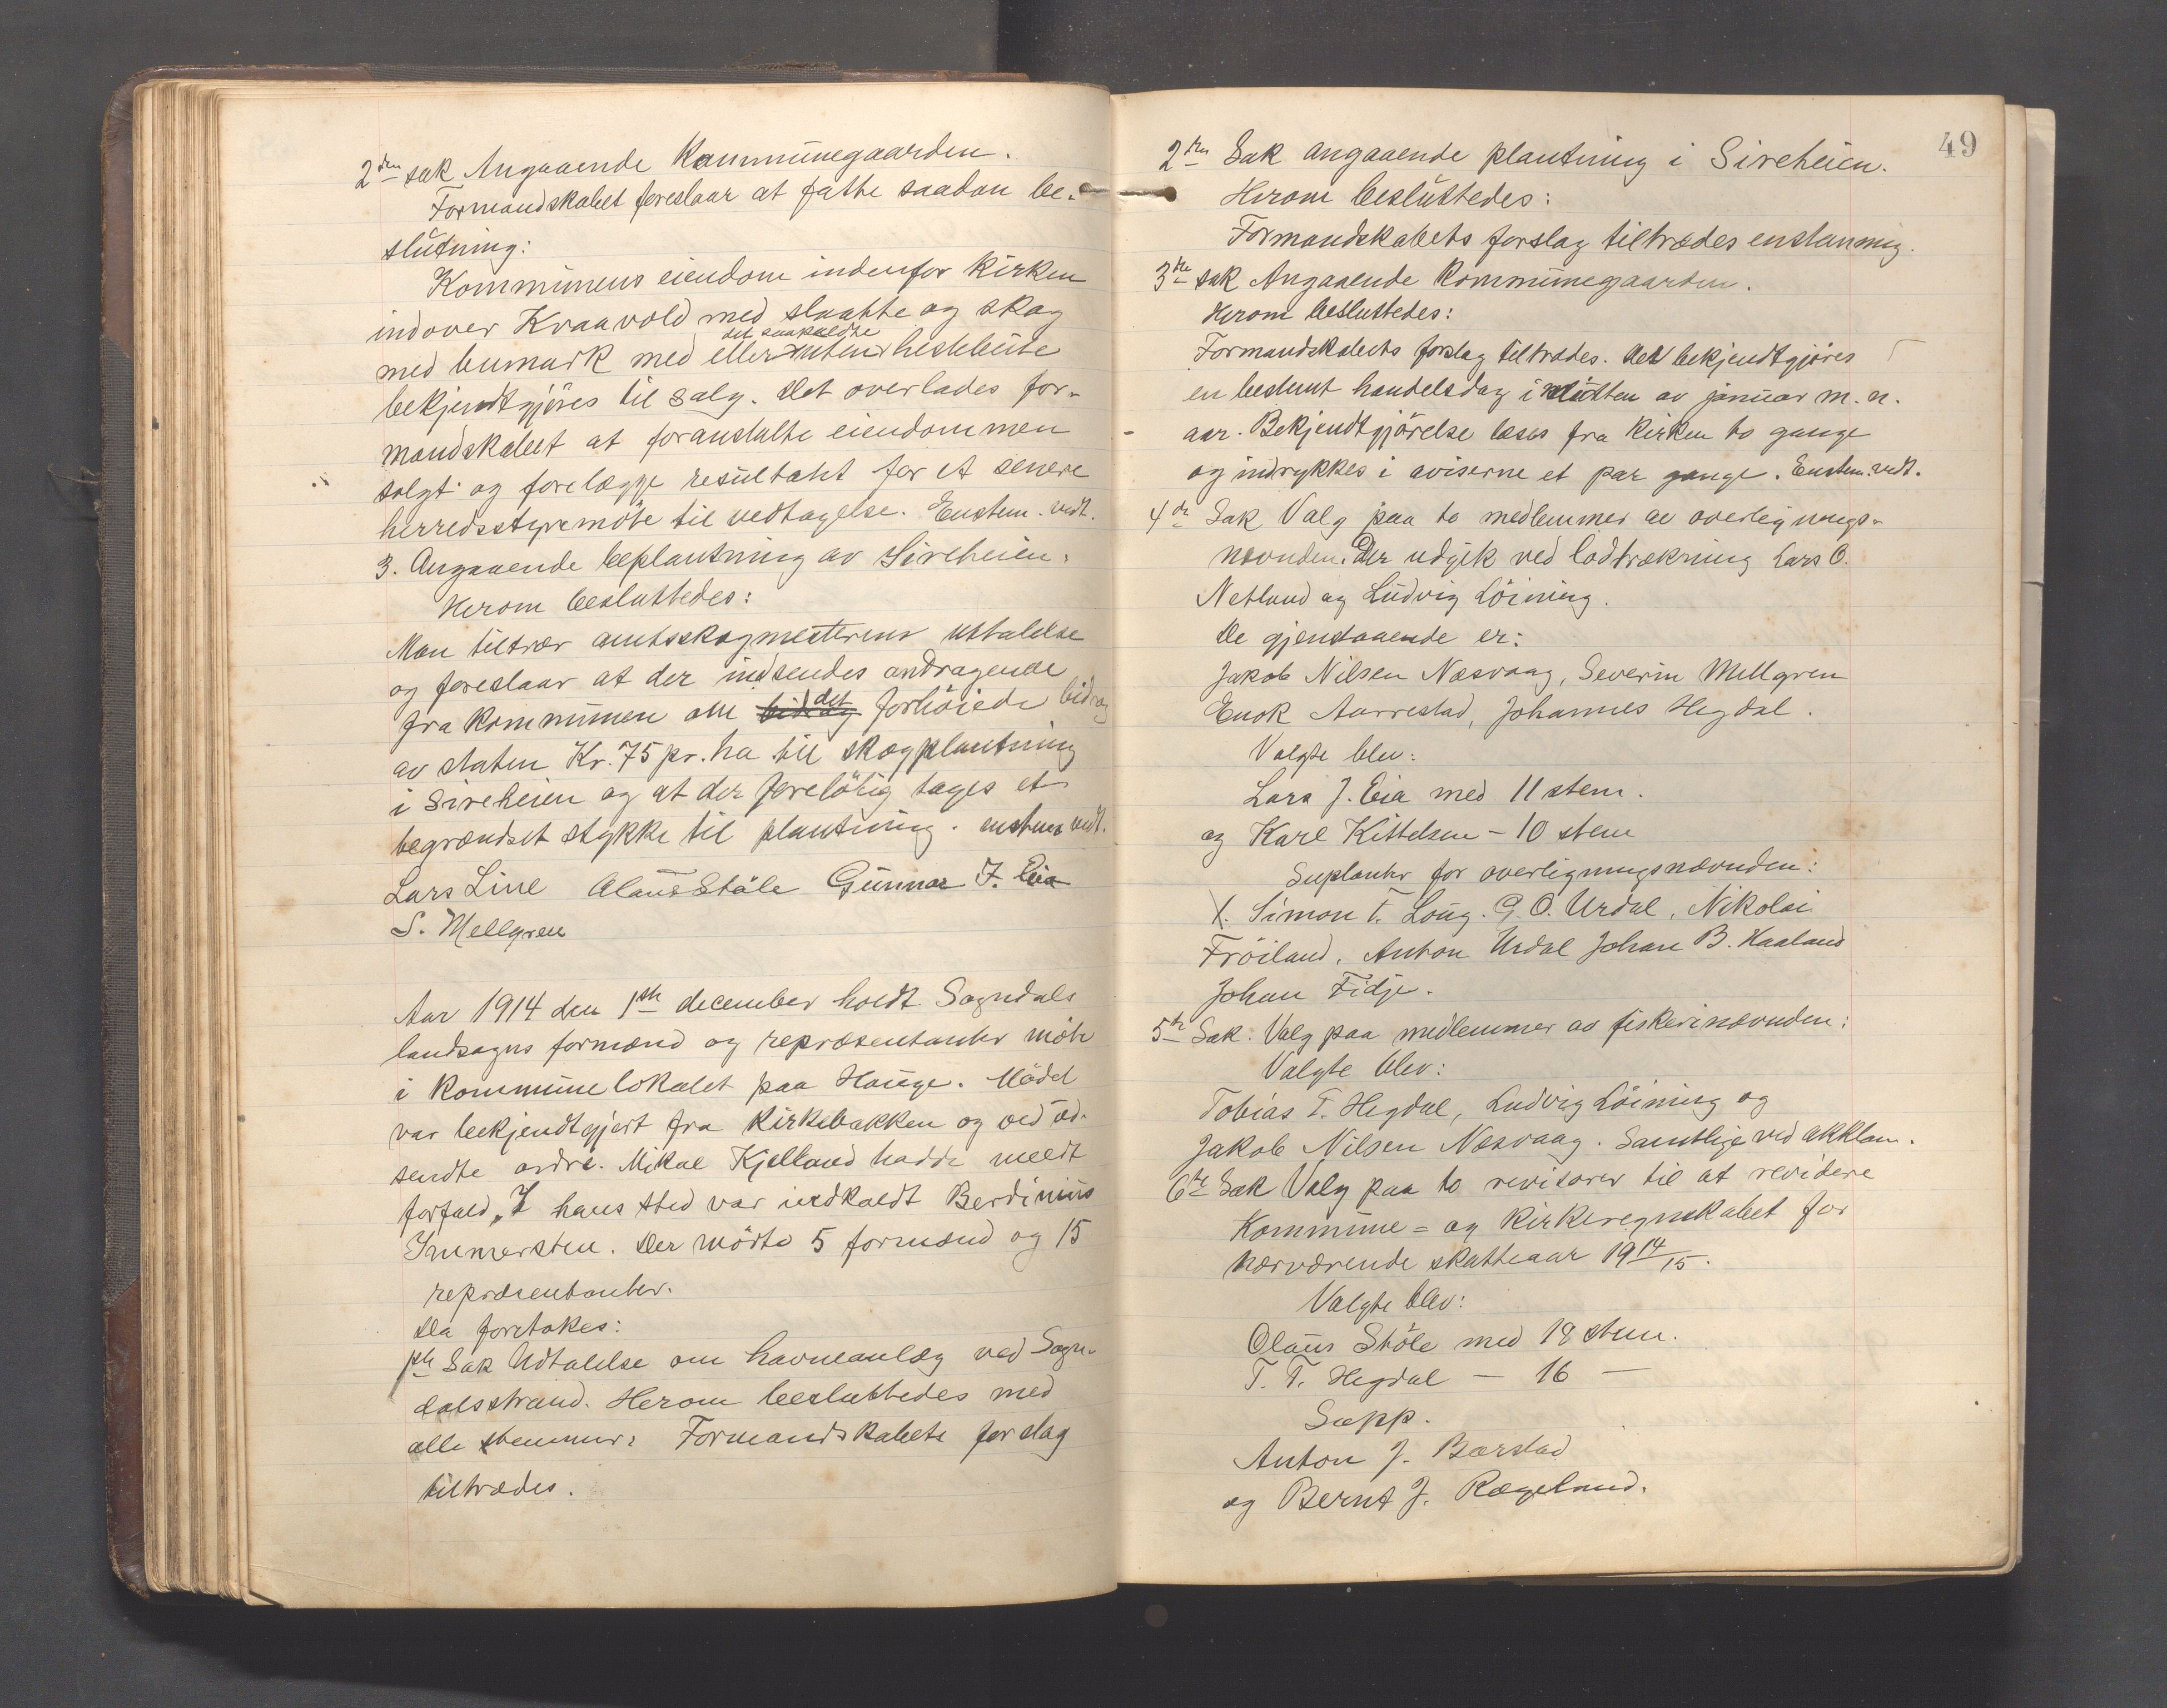 2den sak Angaaende Kommunegaarden.
Formandskabet foreslaar at fatte saadan be-
slutning:
Kommunens eiendom indenfor kirken
indover Kraavold med slaatte og skog
det saakaldte
med bumark med eller uten hestebeite
bekjendtgjöres til salg. Det overlades for-
mandskabet at foranstalte eiendommen
solgt og forelægge resultatet for et senere
herredsstyremöte til vedtagelse. Enstem. vedt.
3. Angaaende beplantning av Sireheien.
Herom besluttedes:
Man tiltrær amtsskogmesterens uttalelse
og foreslaar at der indsendes andragende
fra kommunen om bidrag det forhöiede bidrag
av staten Kr. 75 pr. ha til skogplantning
i Sireheien og at der forelöbig tages et
begrændset stykke til plantning. enstem vedt.
Lars Line Olaus Ståle Gunnar J. Eia
S. Mellgren
Aar 1914 den 1ste december holdt Sogndals
landsogns formænd og repræsentanter möte
i kommunelokalet paa Hauge. Mödet
var bekjendtgjort fra kirkebakken og ved ud-
sendte ordre. Mikal Kjelland hadde meldt
forfald. I hans sted var indkaldt Berdinius
Immersten. Der mötte 5 formænd og 15
repræsentanter.
Da foretokes:
1ste Sak Udtalelse om havneanlæg ved Sogn-
dalsstrand. Herom besluttedes med
alle stemmer: Formandskabets forslag
tiltrædes.
49
2den Sak angaaende plantning i Sireheien.
Herom besluttedes:
Formandskabets forslag tiltrædes enstemmig.
3die sak Angaaende Kommunegaarden.
Herom besluttedes:
Formandskabets forslag tiltrædes. Det bekjendtgjöres
en bestemt handelsdag i midten av januar m. n.
aar. Bekjendtgjörelse læses fra kirken to gange
og indrykkes i aviserne et par gange. Enstem. vedt.
4de Sak Valg paa to medlemmer av overlignings-
nævnden. Der udgik ved lodtrækning Lars O.
Netland og Ludvig Löining.
De gjenstaaende er:
Jakob Nilsen Næsvaag, Severin Mellgren
Enok Aarrestad, Johannes Hegdal.
Valgte blev:
Lars J. Eia med 11 stem.
og Karl Kittelsen – 10 stem
Suplanter for overligningsnævnden:
Simon T. Loug. G. O. Urdal, Nikolai
Fröiland, Anton Urdal Johan B. Haaland
Johan Fidje.
5te Sak. Valg paa medlemmer av fiskerinævnden:
Valgte blev:
Tobias T. Hegdal, Ludvig Löining og
Jakob Nilsen Næsvaag. Samtlige ved akklam.
6te Sak Valg paa to revisorer til at revidere
Kommune= og kirkeregnskabet for
nærværende skatteaar 1914/15.
Valgte blev:
Olaus Ståle med 19 stem.
T. T. Hegdal – 16 –
Supp.
Anton J. Barstad
og Bernt J. Rægeland.